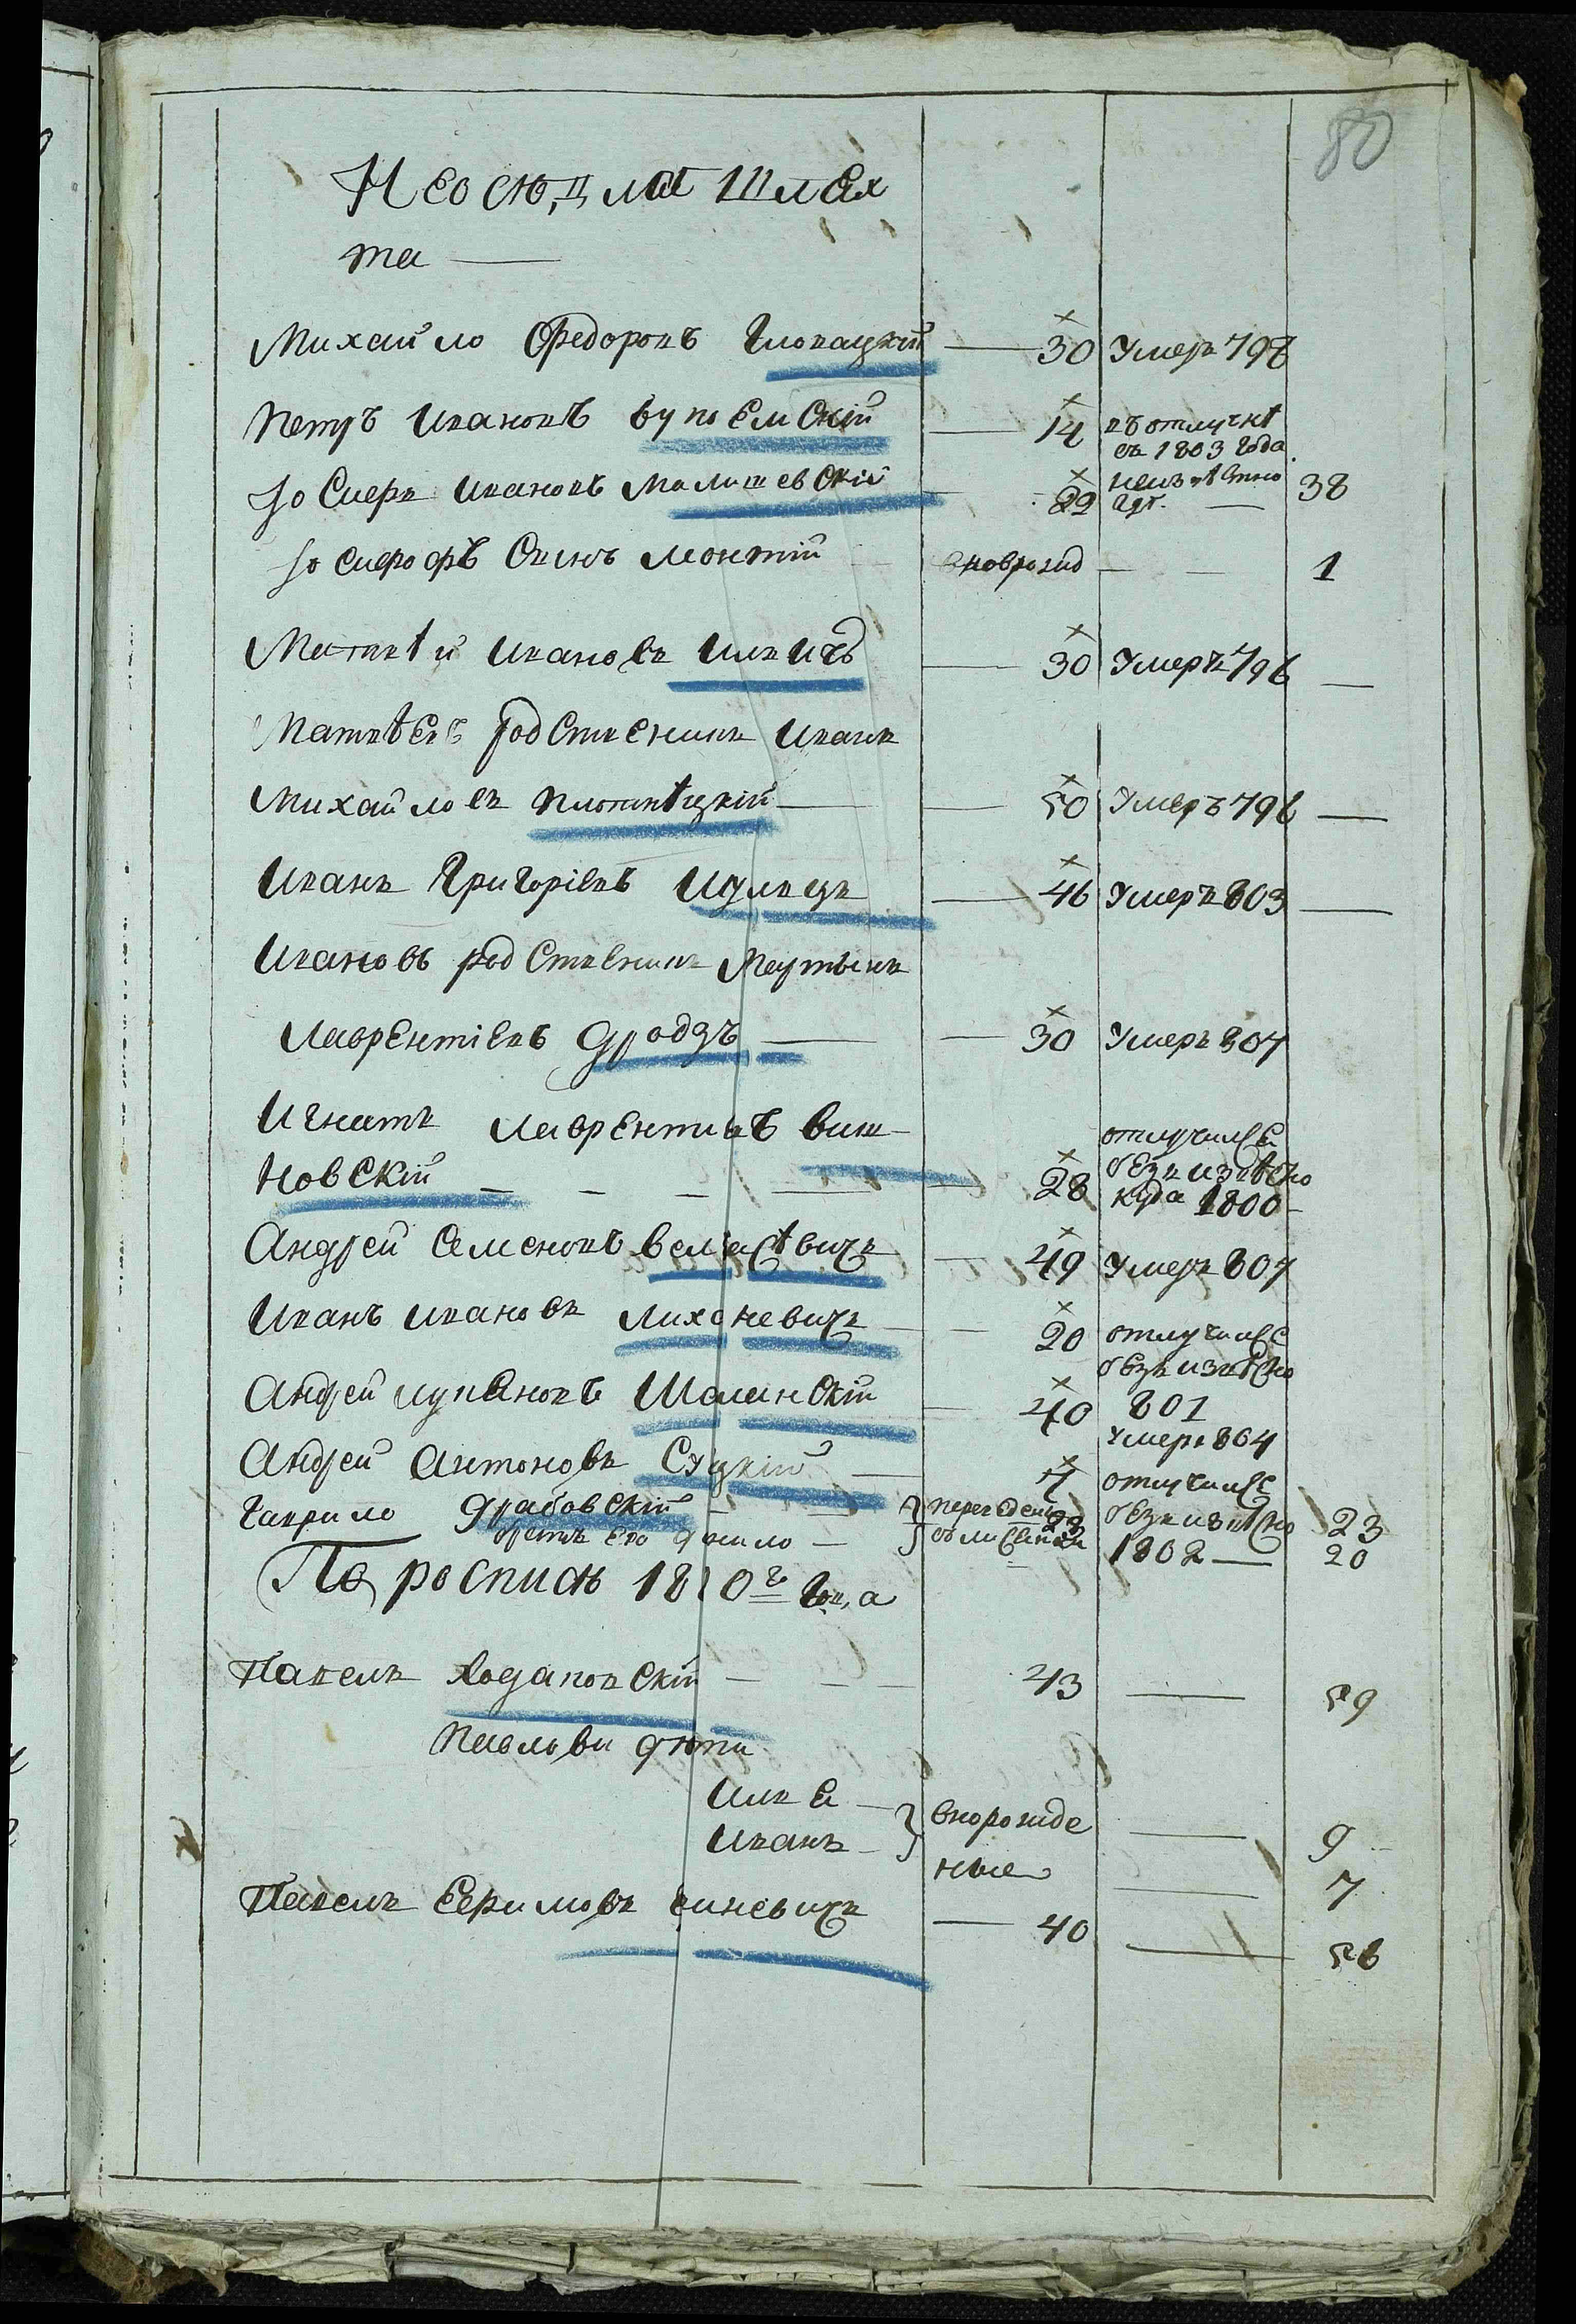 80
Неосѣдлая Шлях
та
Михайло Федоровъ Гловацкій 30 Умеръ 798
Петръ Ивановъ 14 въ отлучкѣ
съ 1803 года
Іосифъ Ивановъ Малишевскій 22 неизвѣстно 38
Іосифовъ Сынъ вноврожд 1
Матвѣй Ивановъ Ильичъ 30 Умеръ 796
Матвѣевъ родственикъ Иванъ
Михайловъ Плотнѣцкій 50 Умеръ 796
Иванъ Григоріевъ 46 Умеръ 803
Ивановъ родственикъ Мартынъ
Лаврентіевъ Дроздъ 30 Умеръ 807
Игнатъ Лаврентиевъ Виш-
новскій 28 отлучился
безъ извѣсно
куда 1800
Андрей Семеновъ 49 Умеръ 807
Иванъ Ивановъ Лихоневичъ 20 отлучился
безъ извѣсно
801
Андрей Лукяновъ Шалинскій 40 Умеръ 804
Андрей Антоновъ Сѣцкій 7 отлучился
безъ извѣсно
1802
Гаврило Драбовскій 22 23
братъ Его Данило 20
По росписѣ 1810г года
Павелъ Ходаковскій 43 59
Павлови дѣти
Илья 9
Иванъ 7
внорожде
ные
Павелъ Ефимовъ Синевичъ 40 56